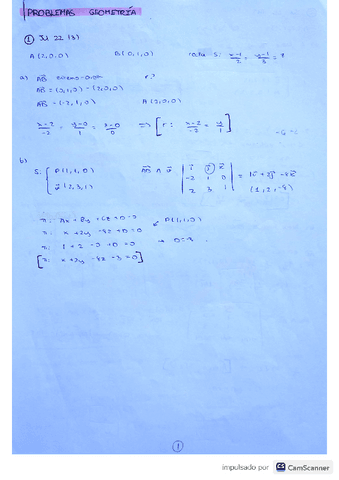 PROBLEMAS GEOMETRÍA
① Jul 22 (3)
A(2,0,0) B(0,1,0) recta s: x-1/2 = y-1/3 = z
a) r?
AB = (0,1,0) - (2,0,0)
AB = (-2,1,0) A(2,0,0)
x-2/-2 = y-0/1 = z-0/0 ⇒ [r: x-2/-2 = y/1]
b)
s: { P(1,1,0)
v(2,3,1)
AB ∧ v | i j k |
| -2 1 0 | = 1i + 2j - 8k
| 2 3 1 | (1,2,-8)
π: Ax + By + Cz + D = 0 P(1,1,0)
π: x + 2y - 8z + D = 0
π: 1 + 2 - 0 + D = 0 → D = -3
[π: x + 2y - 8z - 3 = 0]
1
impulsado por CS CamScanner